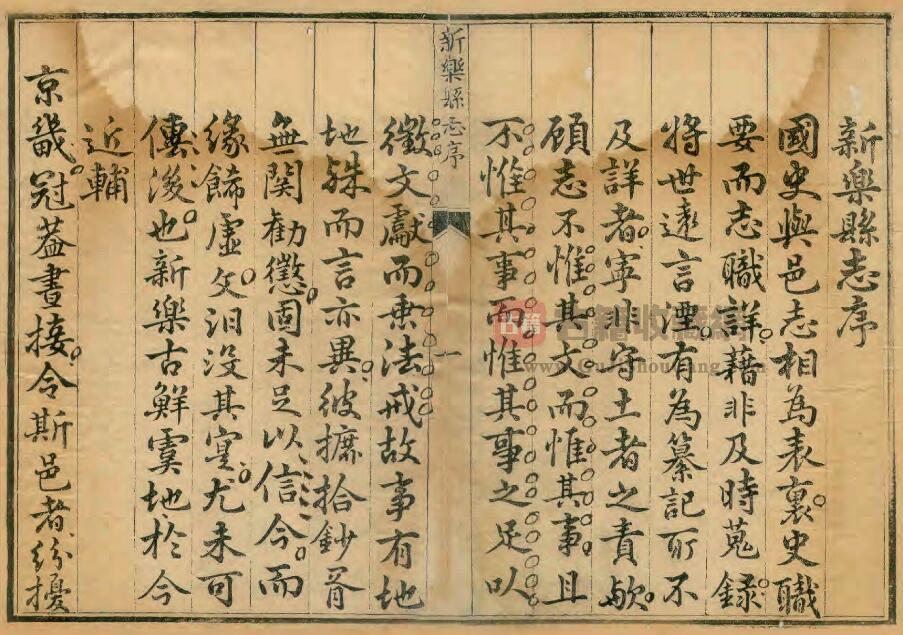 新樂縣志序
國史與邑志相為表裏史職
要而志職詳藉非及時蒐錄
將世遠言湮有為纂記所不
及詳者寧非守土者之責歟
顧志不惟其文而惟其事且
不惟其事而惟其事之足以
新樂縣志序
一
徵文獻而垂法戒故事有地
地殊而言亦異彼摭拾鈔胥
無関勸懲固未足以信今而
緣飾虛文汨沒其寔尤未可
傳後也新樂古鮮虞地於今
近輔
京畿冠蓋晝接令斯邑者紛擾
古籍